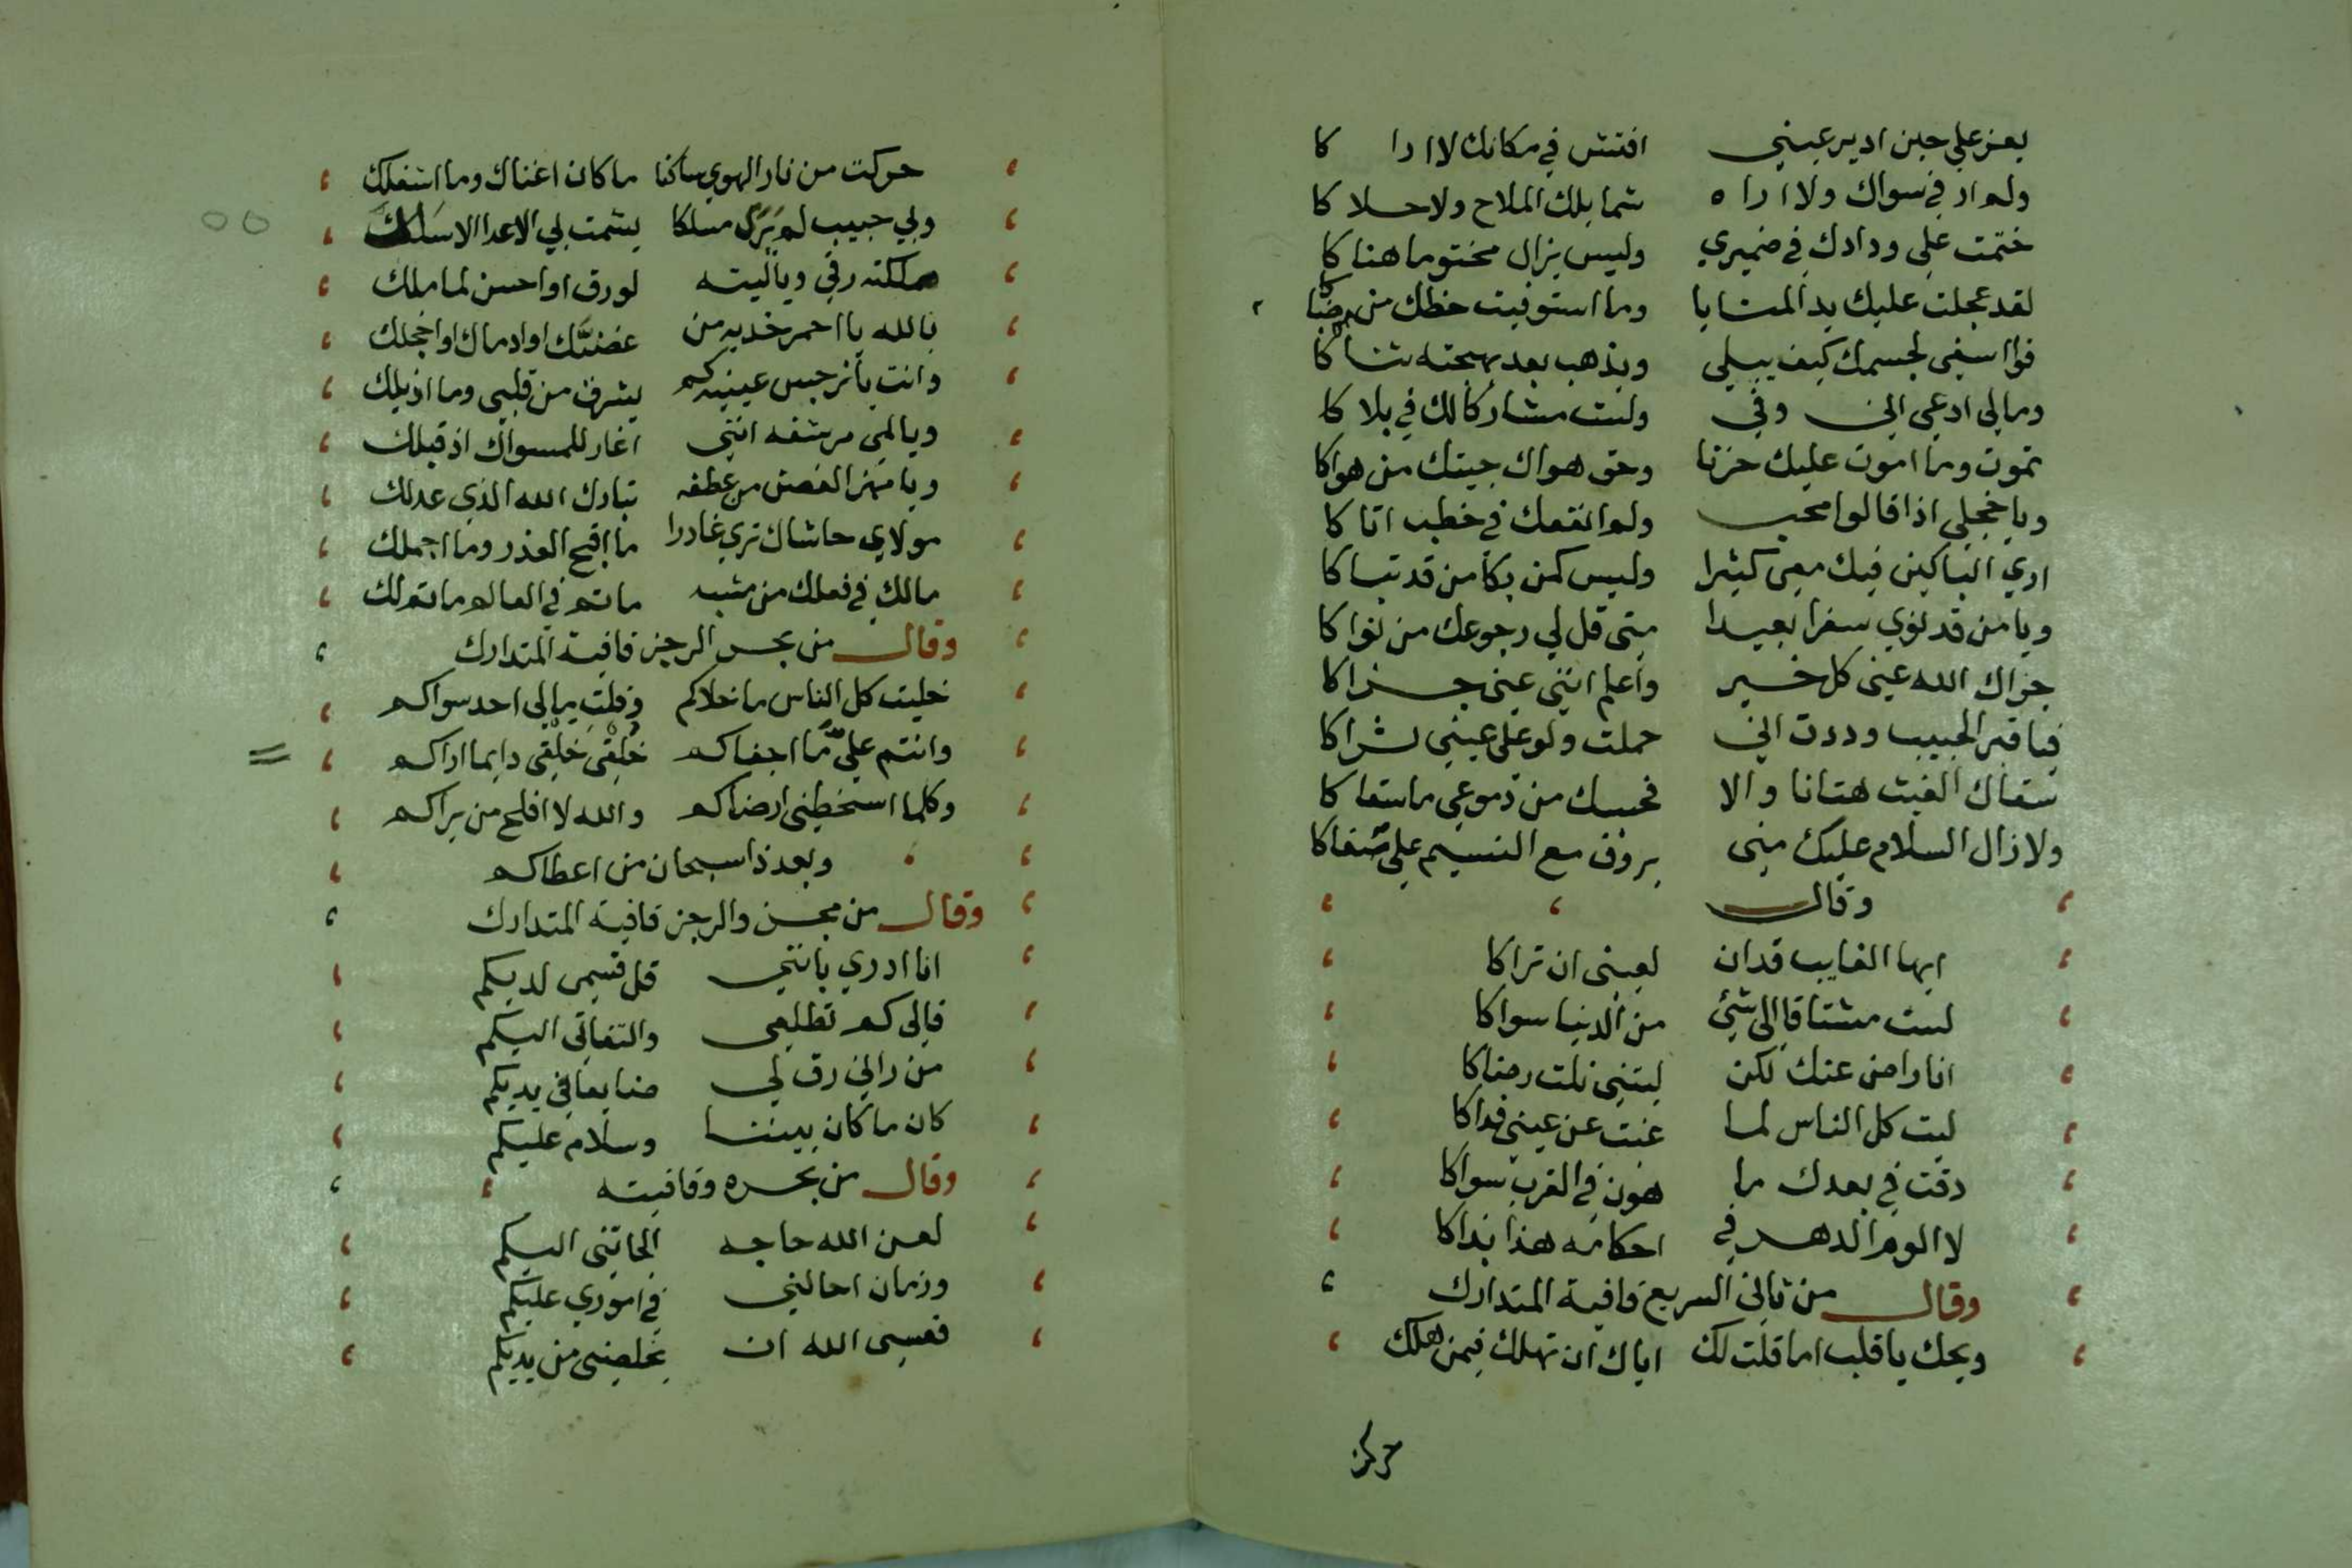 يعز علي حين ادير عيني افتش في مكانك لا ارا كا
ولم ار في سواك ولا ارا ه شمايلك الملاح ولا حلا كا
ختمت علي ودادك في ضميري وليس يزال مختوما هنا كا
لقد عجلت عليك يد المنايا وما استوفيت حظك من صبا كا
فوا اسفي لجسمك كيف يبلي ويذهب بعد بهجته سنا كا
ومالي ادعي اني وفي ولست مشاركا لك في بلا كا
تموت وما اموت عليك حزنا وحق هواك جيتك من هواكا
ويا خجلي اذا قالوا محب ولم انفعك في خطب اتا كا
اري الباكين فيك معي كثيرا وليس كمن بكا من قد تبا كا
ويا من قد نوي سفرا بعيدا متى قل لي رجوعك من نوا كا
جزاك الله عيني كل خير واعلم انني عيني جزا كا
فيا قبر الحبيب وددت اني حملت ولو علي عيني ثرا كا
سقاك الغيث هتانا والا فحسبك من دموعي ما سقا كا
ولا زال السلام عليك مني يروف مع النسيم علي صفاكا
وقال
ايها الغايب قد ان لعيني ان تراكا
لست مشتاقا الى شئي من الدنيا سواكا
انا راض عنك لكن ليتني نلت رضاكا
ليت كل الناس لما غبت عن عيني فداكا
ذقت في بعدك ما هون في القرب سواكا
لا الوم الدهر في احكامه هذا بذاكا
وقال من ثاني السريع قافية المتدارك
ويحك يا قلب اما قلت لك اياك ان تهلك فيمن هلك
حركت
حركت من نار الهوي ساكنا ما كان اغناك وما اشغلك
ولي حبيب لم يرى مسلكا يشمت بي الاعدا الا سلك
ملكته رقي وياليته لورق او احسن لما ملك
بالله يا احمر خديه من عضك او ادماك او اخجلك
وانت يا نرجس عينيه كم يشرف من قلبي وما اذبلك
ويا لمي مرشفه انني اغار للمسواك اذ قبلك
ويا مهز الغصن من عطفه تبارك الله الذي عدلك
مولاي حاشاك تري غادرا ما اقبح الغدر وما اجملك
مالك في فعلك من مشبه ما تم في العالم ما تم لك
وقال من بحر الرجز قافية المتدارك
خليت كل الناس ما خلاكم وقلت مالي احد سواكم
وانتم علي ما اجفاكم خلقي خلقي دايما اراكم
وكلما اسخطني ارضاكم والله لا افلح من يراكم
وبعد ذا سبحان من اعطاكم
وقال من مجزو الرجز قافية المتدارك
انا ادري بانني قل قسمي لديكم
فالي كم تطلعي والتفاتي اليكم
من راني رق لي ضايعا في يديكم
كان ما كان بيننا وسلام عليكم
وقال من بحره وقافيته
لعن الله حاجه الجاتني اليكم
وزمان احالني في اموري عليكم
فعسى الله ان يخلصني من يديكم